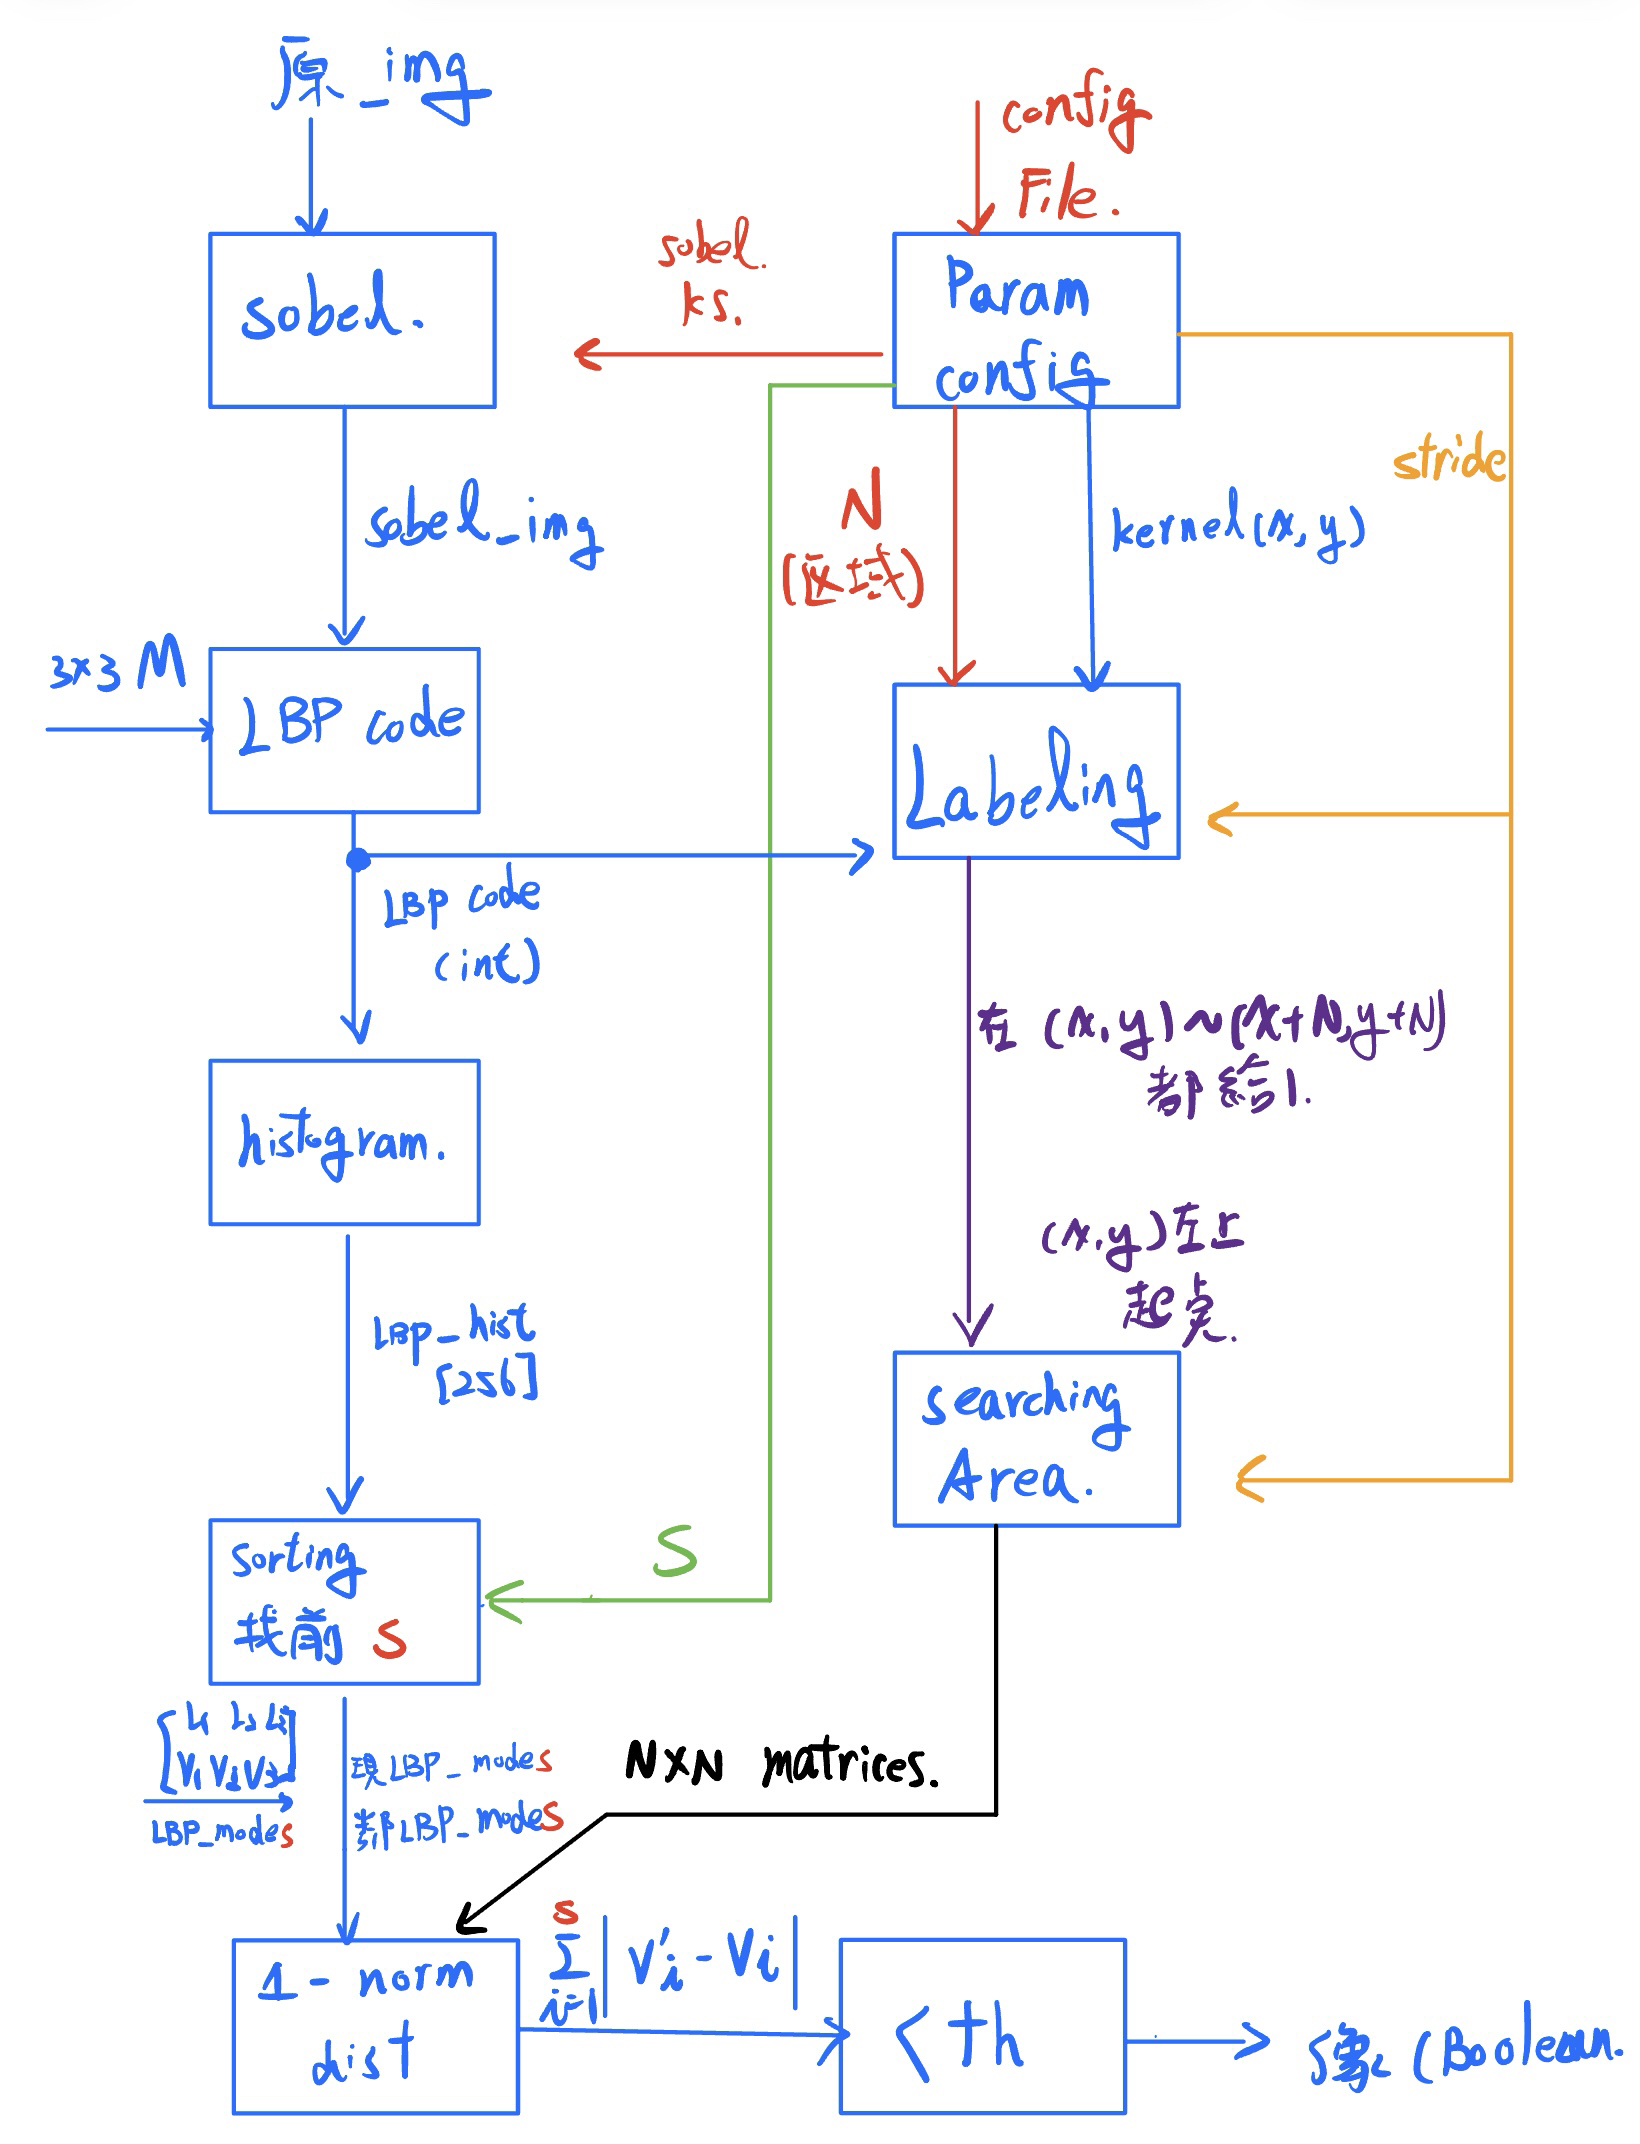 原_img
config
File.
sobel.
ks.
sobel.
Param
config
stride
sobel_img
N
(区域)
kernel(x, y)
3×3 M
LBP code
Labeling
LBP code
(int)
在 (x, y) ~ (x+N, y+N)
都给1.
histogram.
(x, y) 左上
起点.
LBP_hist
[256]
searching
Area.
S
Sorting
找前 S
V1 V2 V3
LBP_modes
現LBP_modes
LBP_modes
N×N matrices.
1-norm
dist
s
∑ | V'i - Vi |
i=1
< th
像 (Boolean.